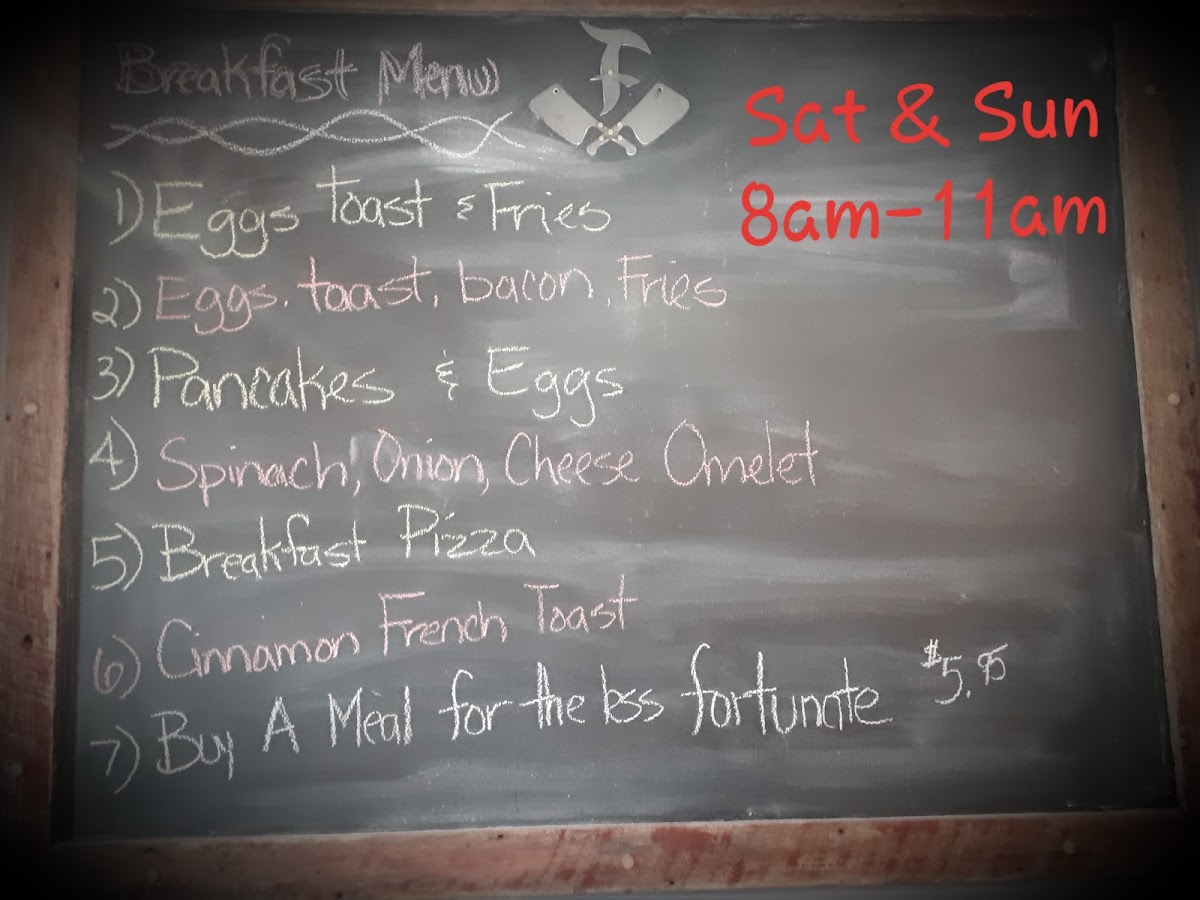 Breakfast Menu
F
Sat & Sun
8am-11am
1) Eggs Toast & Fries
2) Eggs, toast, bacon, Fries
3) Pancakes & Eggs
4) Spinach, Onion, Cheese Omelet
5) Breakfast Pizza
6) Cinnamon French Toast
7) Buy A Meal for the less fortunate $5.95